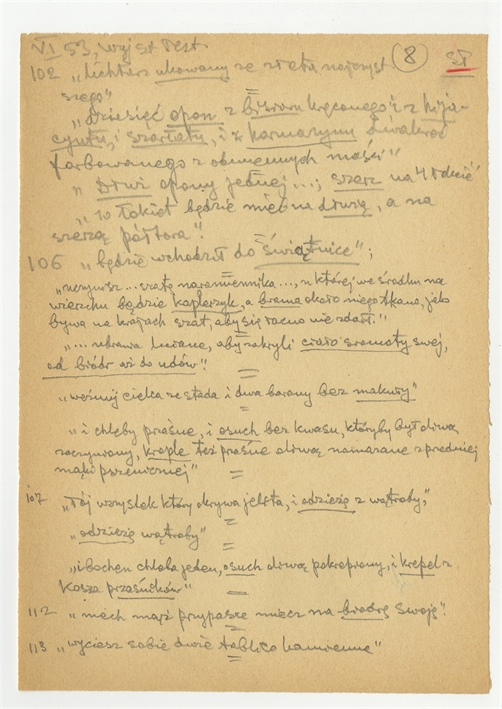 VI 53, wyj St Test. 8 SP
102 „lichtarz ukowany ze złota najczyst
szego”
„Dziesięć opon z bisioru kręconego i z hija-
cyntu, i szarłatu, i z karmazynu dwakroć
farbowanego z odmiennych maści”
opony jednej ...; szerz na 4 łokcie”
„10 łokiet będzie mieć na dłużą, a na
szerzą półtora”.
106 „będzie wchodził do świątnice”;
„uczynisz ... szatę naramiennika ..., u której we środku na
wierzchu będzie kaplerzyk, a brama około niego tkana, jako
bywa na krajach szat, aby się łacno nie zdarł.”
„... ubrania lniane, aby zakryli ciało sromoty swej,
od biódr aż do udów”.
„weźmij cielca ze stada i dwa barany bez makuły”
„i chleby praśne, i osuch bez kwasu, któryby był oliwą
zaczyniony, kreple też praśne oliwą namazane z przedniej
mąki pszenicznej”
107 „łój wszystek który okrywa jelita, i odzieżę z wątroby,”
„odzieżę wątroby”
„i bochen chleba jeden, osuch oliwą pokropiony, i krepel z
kosza przaśników”
112 „niech mąż przypasze miecz na biodrę swoję”.
113 „wyciesz sobie dwie tablice kamienne”